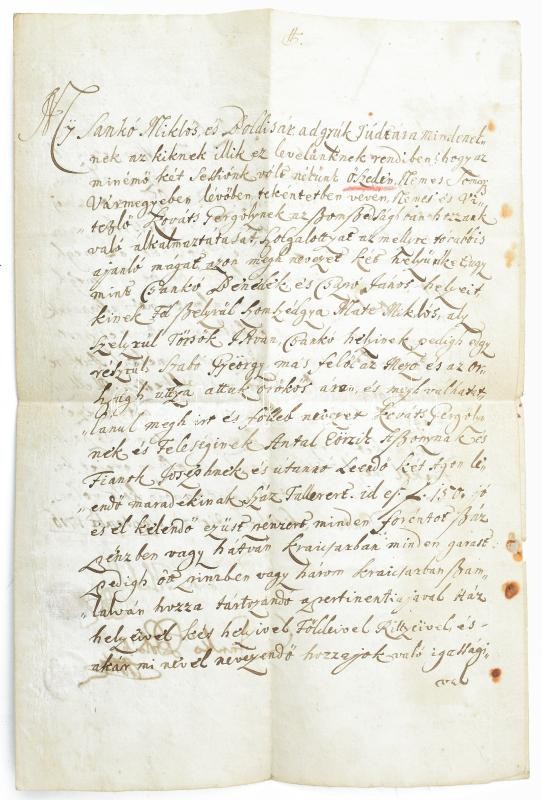 Mÿ Sankó Miklós, és Boldisár adgyuk Túdtára mindenek„
nek az kiknek illik ez levelünknek rendiben, hogy az
minémö két Sessiónk vólt nékünk Őszeden, Nemes
Vármegyében lévöben, tekéntetben vévén, Nemes és Vi„
tézlö Kováts Gergölynek az
való alkalmaztatását, szolgálottyát az mellyre továbbis
ajánló magát, azon megh nevezet két helyünket, ugÿ
mint Csankó Benedek és János helyeit,
kinek Szomszédgya Máté Miklós, alÿ
Szélyrül Törsök István, Csankó helyinek pedigh egÿ
részrül Szabó Gyöergÿ, más felöl az Mezö és az Or„
szágh uttya attuk örökös áron, és megh válhatat„
„lanul megh irt és fölleb nevezet Kováts Gergöly„
nek és Feleséginek Antal Asszonynak és
Fianok Josephnek és utánno Leendö két Ágon lé„
endö maradékinak Száz Tallérért. id est f. 150. jó
és el kelendö ezüst pénzért minden foréntot Száz
pénzben vagy hatvan kraiczarban minden garast
Pedigh öt pénzben vagy három kraiczarban Szám„
„lálván hozzá tártozandó apertinentiájával Ház
helyeivel kés helyivel Földeivel Rétyeivel, és„
akár mi névél nevezendö hozzájok való igassági„
val